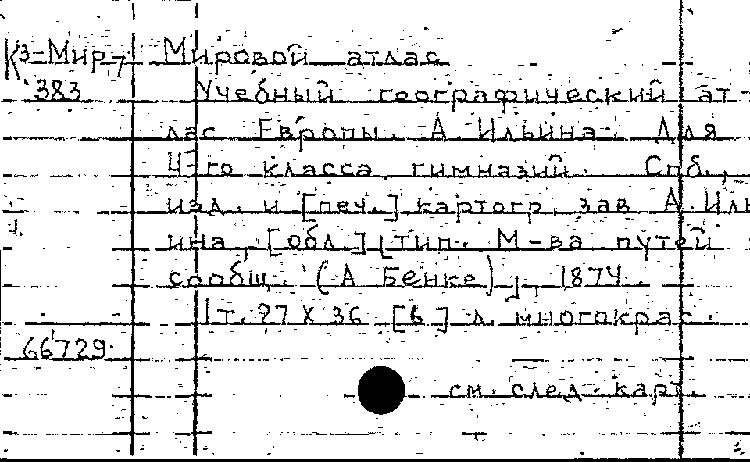 К3-Мир-7 Мировой атлас
383 Учебный географический ат-
лас Европы. А. Ильина. Для
4-го класса гимназий. Спб.,
изд. и [печ.] картогр. зав. А. Иль
ина, [обл.] [тип. М-ва путей
сообщ. (А. Бенке)], 1874.
1т. 27 X 36 [6] л. многокрас.
66729.
см. след. карт.